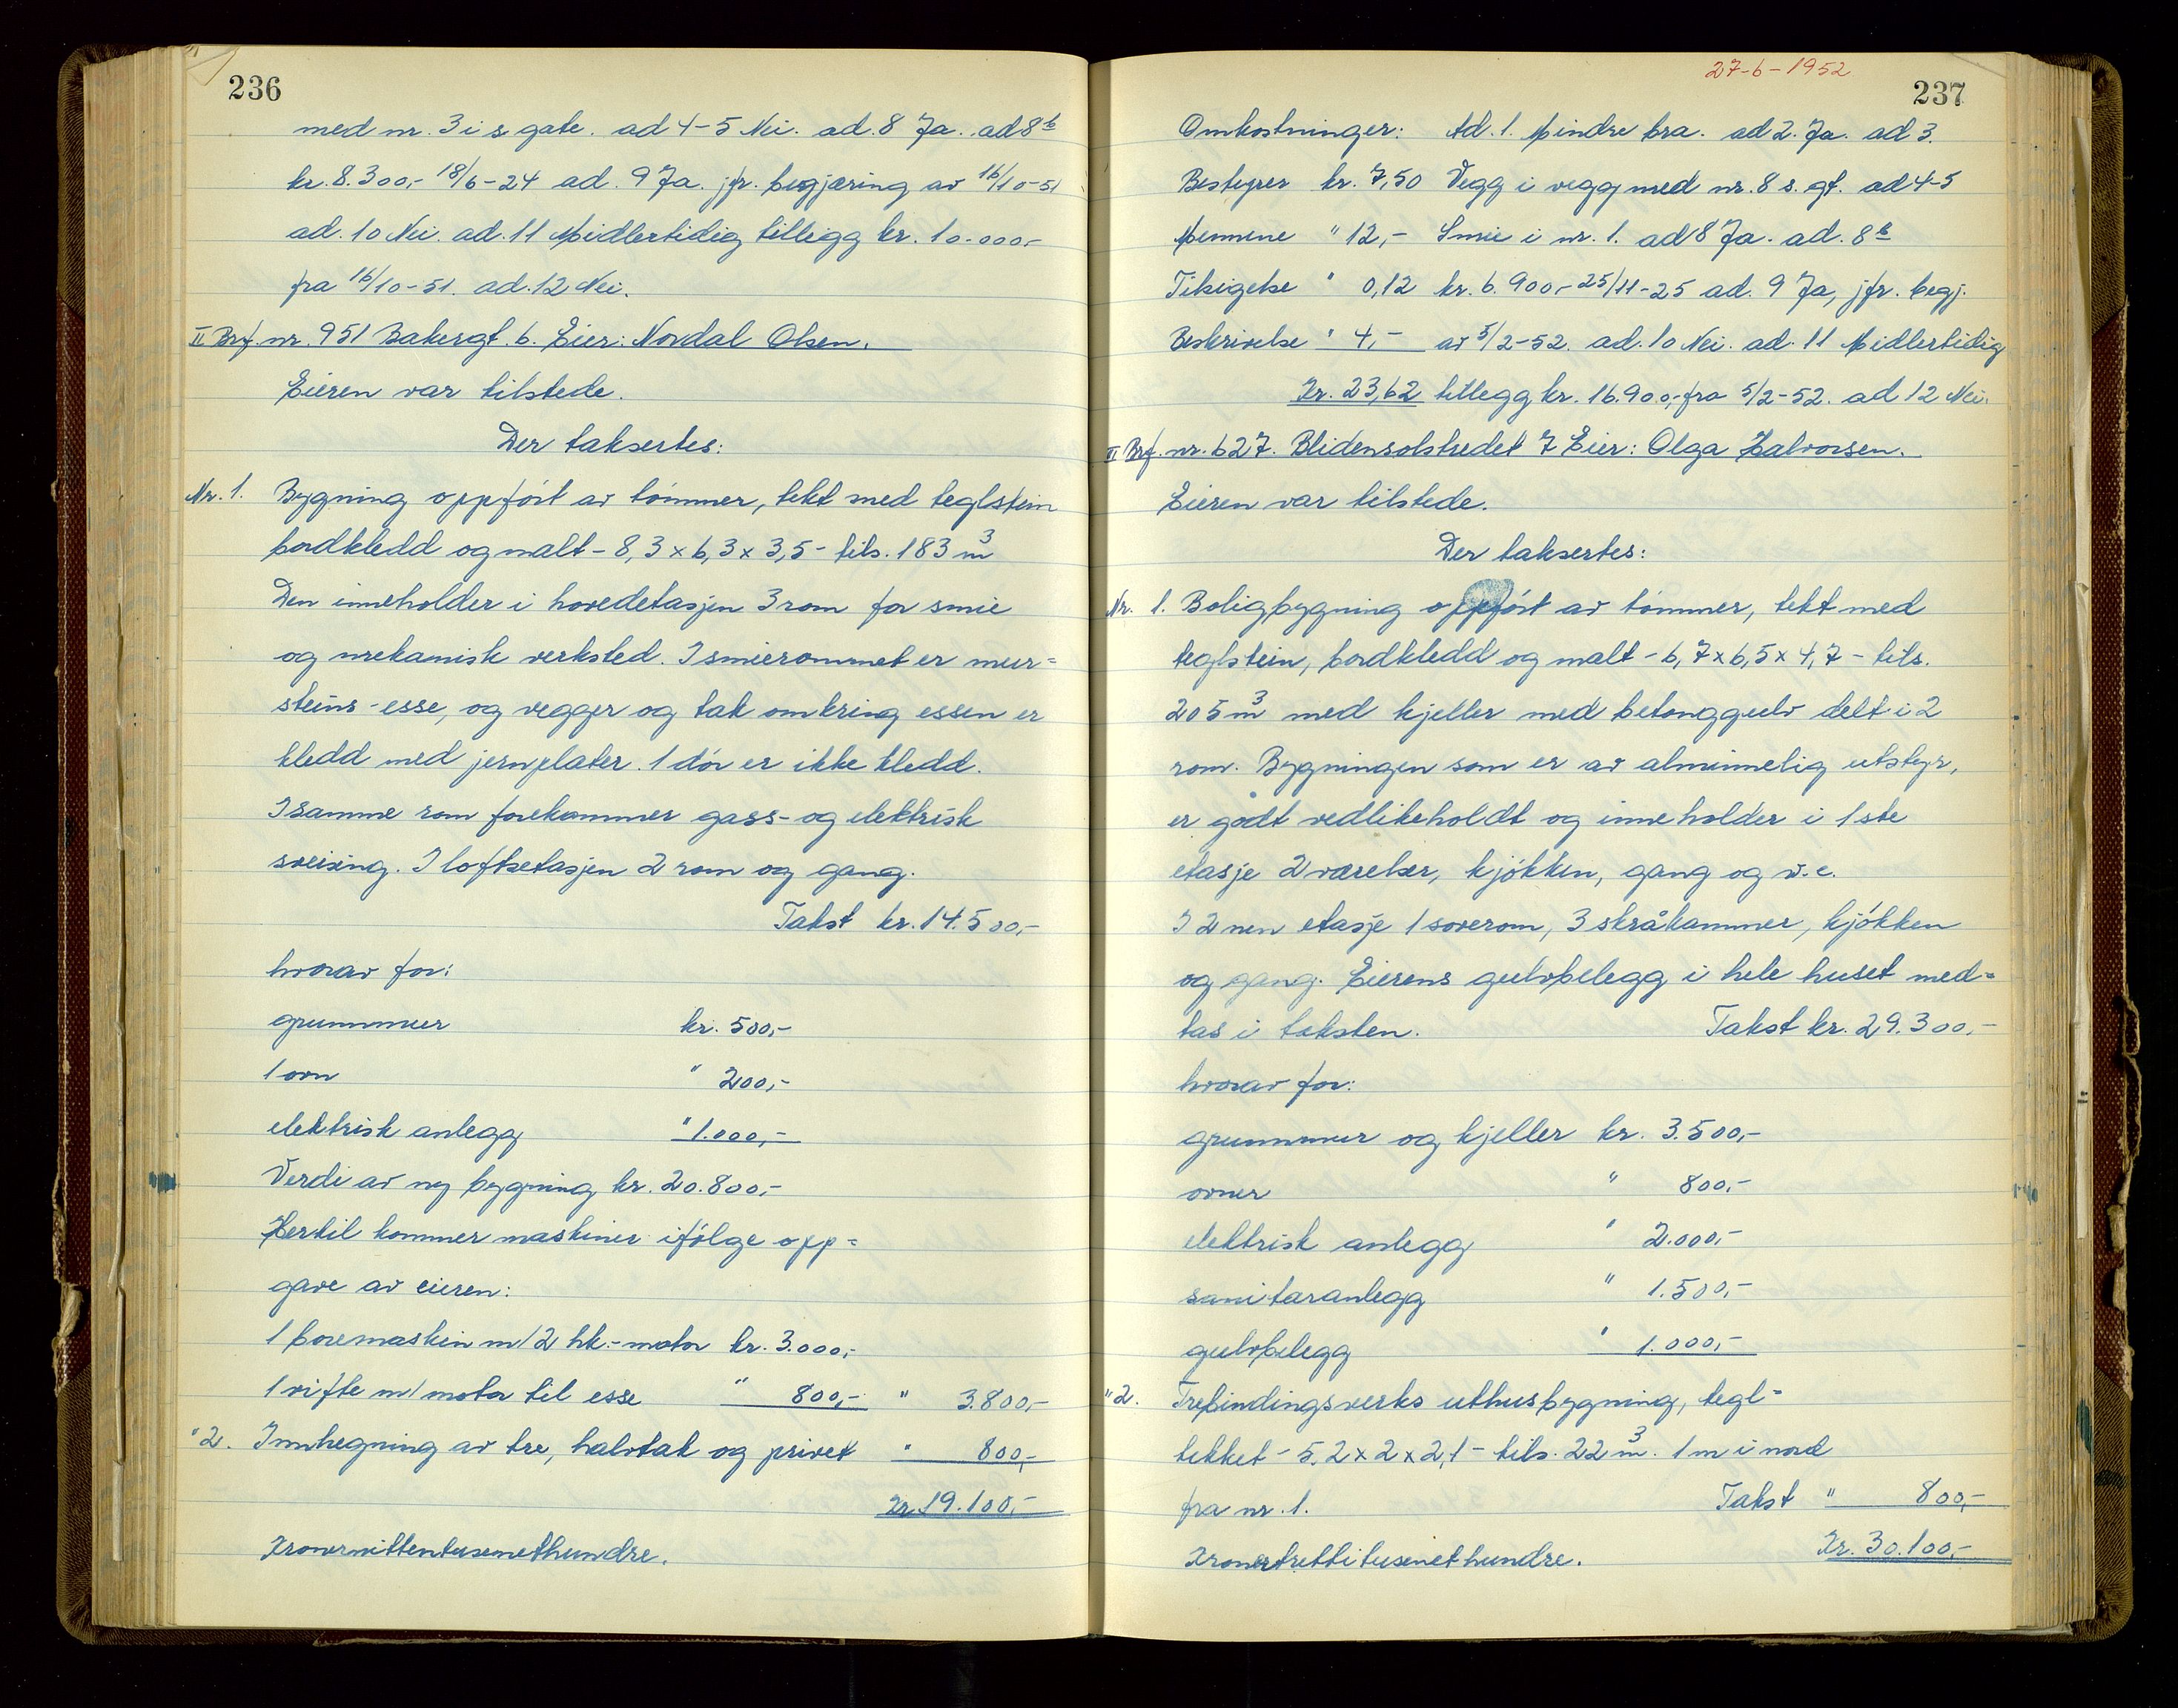 236
med nr. 3 i s. gate. ad 4-5 Nei. ad. 8 Ja. ad 8b
kr. 8.300,- 18/6-24 ad. 9 Ja. jfr. begjæring av 16/10-51
ad. 10 Nei. ad. 11 Midlertidig tillegg kr. 10.000,-
fra 16/10-51. ad. 12 Nei.
II Brf. nr. 951 Bakergt. 6. Eier: Nordal Olsen.
Eieren var tilstede.
Der taksertes:
Nr. 1. Bygning oppført av tømmer, tekt med teglstein
bordkledd og malt - 8,3 x 6,3 x 3,5 - tils. 183 m3
Den inneholder i hovedetasjen 3 rom for smie
og mekanisk verksted. I smierommet er mur=
steins-esse, og vegger og tak omkring essen er
kledd med jernplater. 1 dør er ikke kledd.
I samme rom forekommer gass- og elektrisk
sveising. I loftsetasjen 2 rom og gang.
Takst kr. 14.500,-
hvorav for:
grunnmur kr. 500,-
1 ovn " 200,-
elektrisk anlegg " 1.000,-
Verdi av ny bygning kr. 20.800,-
Hertil kommer maskiner ifølge opp=
gave av eieren:
1 boremaskin m/2 hk.-motor kr. 3.000,-
1 vifte m/motor til esse " 800,- " 3.800,-
" 2. Innhegning av tre, halvtak og privet " 800,-
Kr. 19.100,-
Kronernittentusenethundre.
27-6-1952
237
Omkostninger: Ad. 1. Mindre bra. ad 2. Ja. ad 3.
Bestyrer kr. 7,50 Vegg i vegg med nr. 8 s. gt. ad 4-5
Mennene " 12,- Smie i nr. 1. ad 8 Ja. ad. 8b
Tilsigelse " 0,12 kr. 6.900,- 25/11-25 ad. 9 Ja, jfr. begj.
Beskrivelse " 4,- av 5/2-52. ad. 10 Nei. ad. 11 Midlertidig
Kr. 23,62 tillegg kr. 16.900,- fra 5/2-52. ad 12 Nei.
III Brf. nr. 627. Blidensolstredet 7 Eier: Olga Halvorsen.
Eieren var tilstede.
Der taksertes:
Nr. 1. Boligbygning oppført av tømmer, tekt med
teglstein, bordkledd og malt - 6,7 x 6,5 x 4,7 - tils.
205 m3 med kjeller med betonggulv delt i 2
rom. Bygningen som er av alminnelig utstyr,
er godt vedlikeholdt og inneholder i 1ste
etasje 2 værelser, kjøkken, gang og v.c.
I 2nen etasje 1 soverom, 3 skråkammer, kjøkken
og gang. Eierens gulvbelegg i hele huset med=
tas i taksten. Takst kr. 29.300,-
hvorav for:
grunnmur og kjeller kr. 3.500,-
ovner " 800,-
elektrisk anlegg " 2.000,-
sanitæranlegg " 1.500,-
gulvbelegg " 1.000,-
" 2. Trebindingsverks uthusbygning, tegl=
tekket - 5,2 x 2 x 2,1 - tils. 22 m3. 1 m i nord
fra nr. 1. Takst " 800,-
Kr. 30.100,-
Kronertrettitusenethundre.